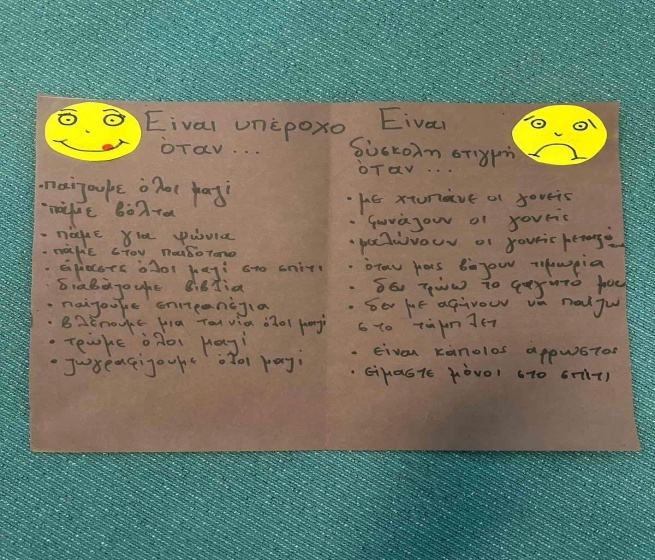 Είναι υπέροχο
όταν...
• παίζουμε όλοι μαζί
• πάμε βόλτα
• πάμε για ψώνια
• πάμε στον παιδότοπο
• είμαστε όλοι μαζί στο σπίτι
• διαβάζουμε βιβλία
• παίζουμε επιτραπέζια
• βλέπουμε μια ταινία όλοι μαζί
• τρώμε όλοι μαζί
• ζωγραφίζουμε όλοι μαζί
Είναι
δύσκολη στιγμή
όταν...
• με χτυπάνε οι γονείς
• φωνάζουν οι γονείς
• μαλώνουν οι γονείς
• όταν μας βάζουν τιμωρία
• δεν τρώω το φαγητό μου
• δεν με αφήνουν να παίζω
στο τάμπλετ
• είναι κάποιος άρρωστος
• είμαστε μόνοι στο σπίτι